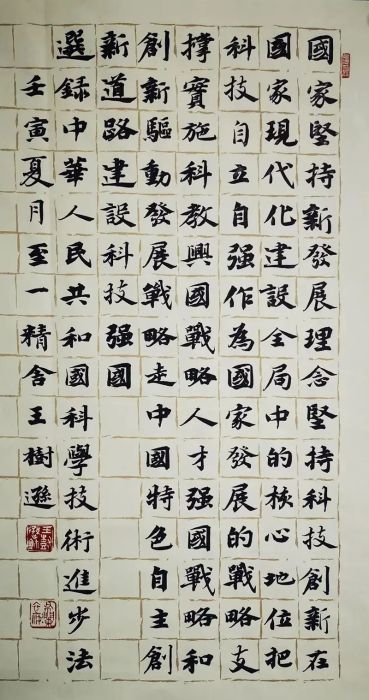 國家堅持新發展理念堅持科技創新在
國家現代化建設全局中的核心地位把
科技自立自强作為國家發展的戰略支
撑實施科教興國戰略人才强國戰略和
創新驅動發展戰略走中國特色自主創
新道路建設科技强國
選録中華人民共和國科學技術進步法
壬寅夏月至一精舍王樹遜